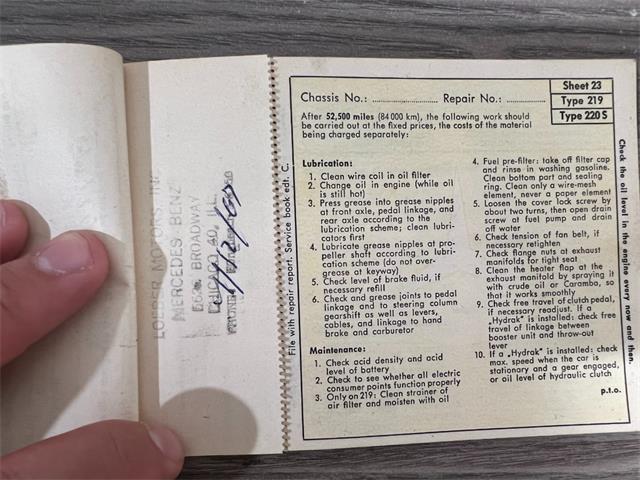 LOEBER MOTORS INC.
MERCEDES BENZ
BROADWAY
CHICAGO 40, ILL.
File with repair report. Service book edt. C.
Sheet 23
Chassis No.: Repair No.: Type 219
Type 220 S
After 52,500 miles (84 000 km), the following work should
be carried out at the fixed prices, the costs of the material
being charged separately:
Lubrication:
1. Clean wire coil in oil filter
2. Change oil in engine (while oil
is still hot)
3. Press grease into grease nipples
at front axle, pedal linkage, and
rear axle according to the
lubrication scheme; clean lubri-
cators first
4. Lubricate grease nipples at pro-
peller shaft according to lubri-
cation scheme (do not over-
grease at keyway)
5. Check level of brake fluid, if
necessary refill
6. Check and grease joints to pedal
linkage and to steering column
gearshift as well as levers,
cables, and linkage to hand
brake and carburetor
Maintenance:
1. Check acid density and acid
level of battery
2. Check to see whether all electric
consumer points function properly
3. Only on 219: Clean strainer of
air filter and moisten with oil
4. Fuel pre-filter: take off filter cap
and rinse in washing gasoline.
Clean bottom part and sealing
ring. Clean only a wire-mesh
element, never a paper element
5. Loosen the cover lock screw by
about two turns, then open drain
screw at fuel pump and drain
off water
6. Check tension of fan belt, if
necessary retighten
7. Check flange nuts at exhaust
manifolds for tight seat
8. Clean the heater flap at the
exhaust manifold by spraying it
with crude oil or Caramba, so
that it works smoothly
9. Check free travel of clutch pedal,
if necessary readjust. If a
„Hydrak" is installed: check free
travel of linkage between
booster unit and throw-out
lever
10. If a „Hydrak" is installed: check
max. speed when the car is
stationary and a gear engaged,
or oil level of hydraulic clutch
p.t.o.
Check the oil level in the engine every now and then.